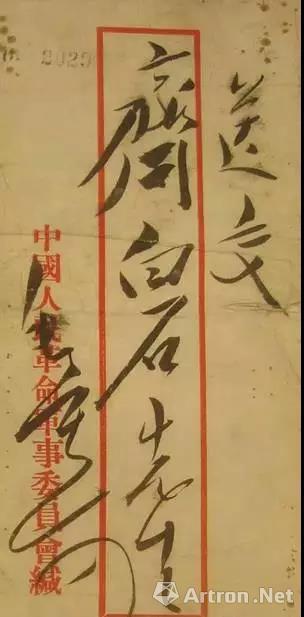 送交
齊白石老先生
中國人民革命軍事委員會緘
Artron.Net